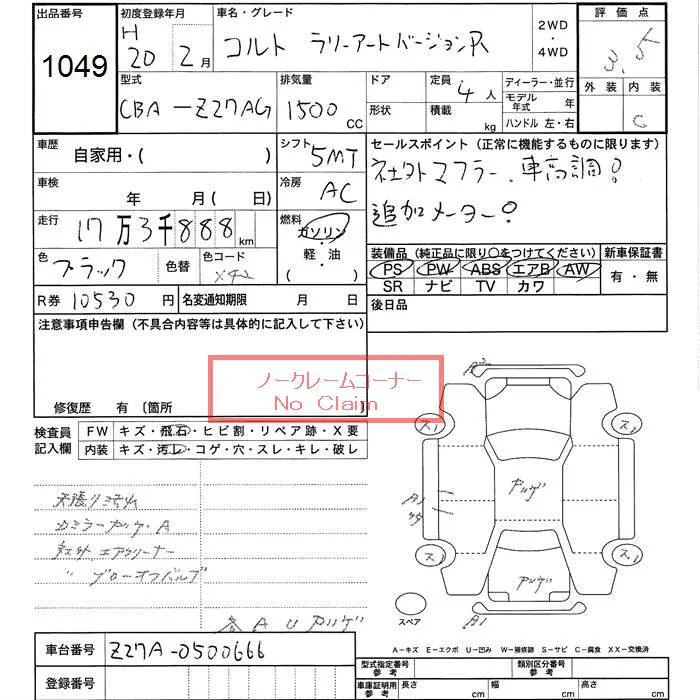 出品番号
1049
初度登録年月
H
20 2月
車名・グレード
コルト ラリーアートバージョンR
2WD
・
4WD
評価点
3.5
外装 内装
C
型式
CBA-Z27AG
排気量
1500 CC
ドア
形状
定員 4人
積載 kg
ディーラー・並行
モデル年式 年
ハンドル 左・右
車歴
自家用・( )
シフト
5MT
セールスポイント(正常に機能するものに限ります)
社外マフラー、車高調!
追加メーター!
車検
年 月( 日)
冷房
AC
走行
17万3千888km
燃料
ガソリン
・
軽・油
( )
色
ブラック
色替
色コード
X42
装備品(純正品に限り○をつけてください)
PS PW ABS エアB AW
SR ナビ TV カワ
新車保証書
有・無
R券 10530円
名変通知期限 月 日
後日品
注意事項申告欄(不具合内容等は具体的に記入して下さい)
ノークレームコーナー
No Claim
修復歴 有〔箇所
検査員記入欄
FW キズ・飛石・ヒビ割・リペア跡・X要
内装 キズ・汚レ・コゲ・穴・スレ・キレ・破レ
天張り汚れ
Dミラーハゲ・A
社外エアクリーナー
〃 ブローオフバルブ
各AUハゲ
ス1
ス1
ス1
ス1
ハゲ
ハゲ
A1
A1
スペア
A-キズ E-エクボ U-凹み W-補修跡 S-サビ C-腐食 XX-交換済
車台番号 Z27A-0500666
登録番号
型式指定番号
参考
類別区分番号
参考
車庫証明用
参考
長さ cm
幅 cm
高さ cm